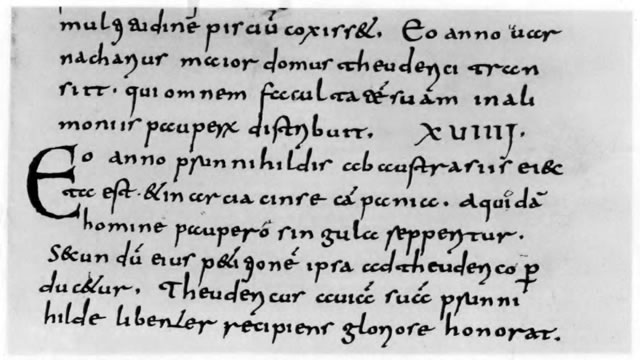 multitudinē pisciū coxiss&. Eo anno uuar
nacharius maior domus theuderici tran
siit. qui omnem facultatē suam in ali
moniis pauperum distribuit. XVIIII.
Eo anno prunnihildis ab austrasiis eiec
ta est. & in arciacinse cāpania. a quidā
homine pauperō singula repperitur.
Secundū eius p&itionē ipsa ad theuderico ꝑ
duc&ur. Theudericus auiā suā prunni
hilde libenter recipiens gloriose honorat.